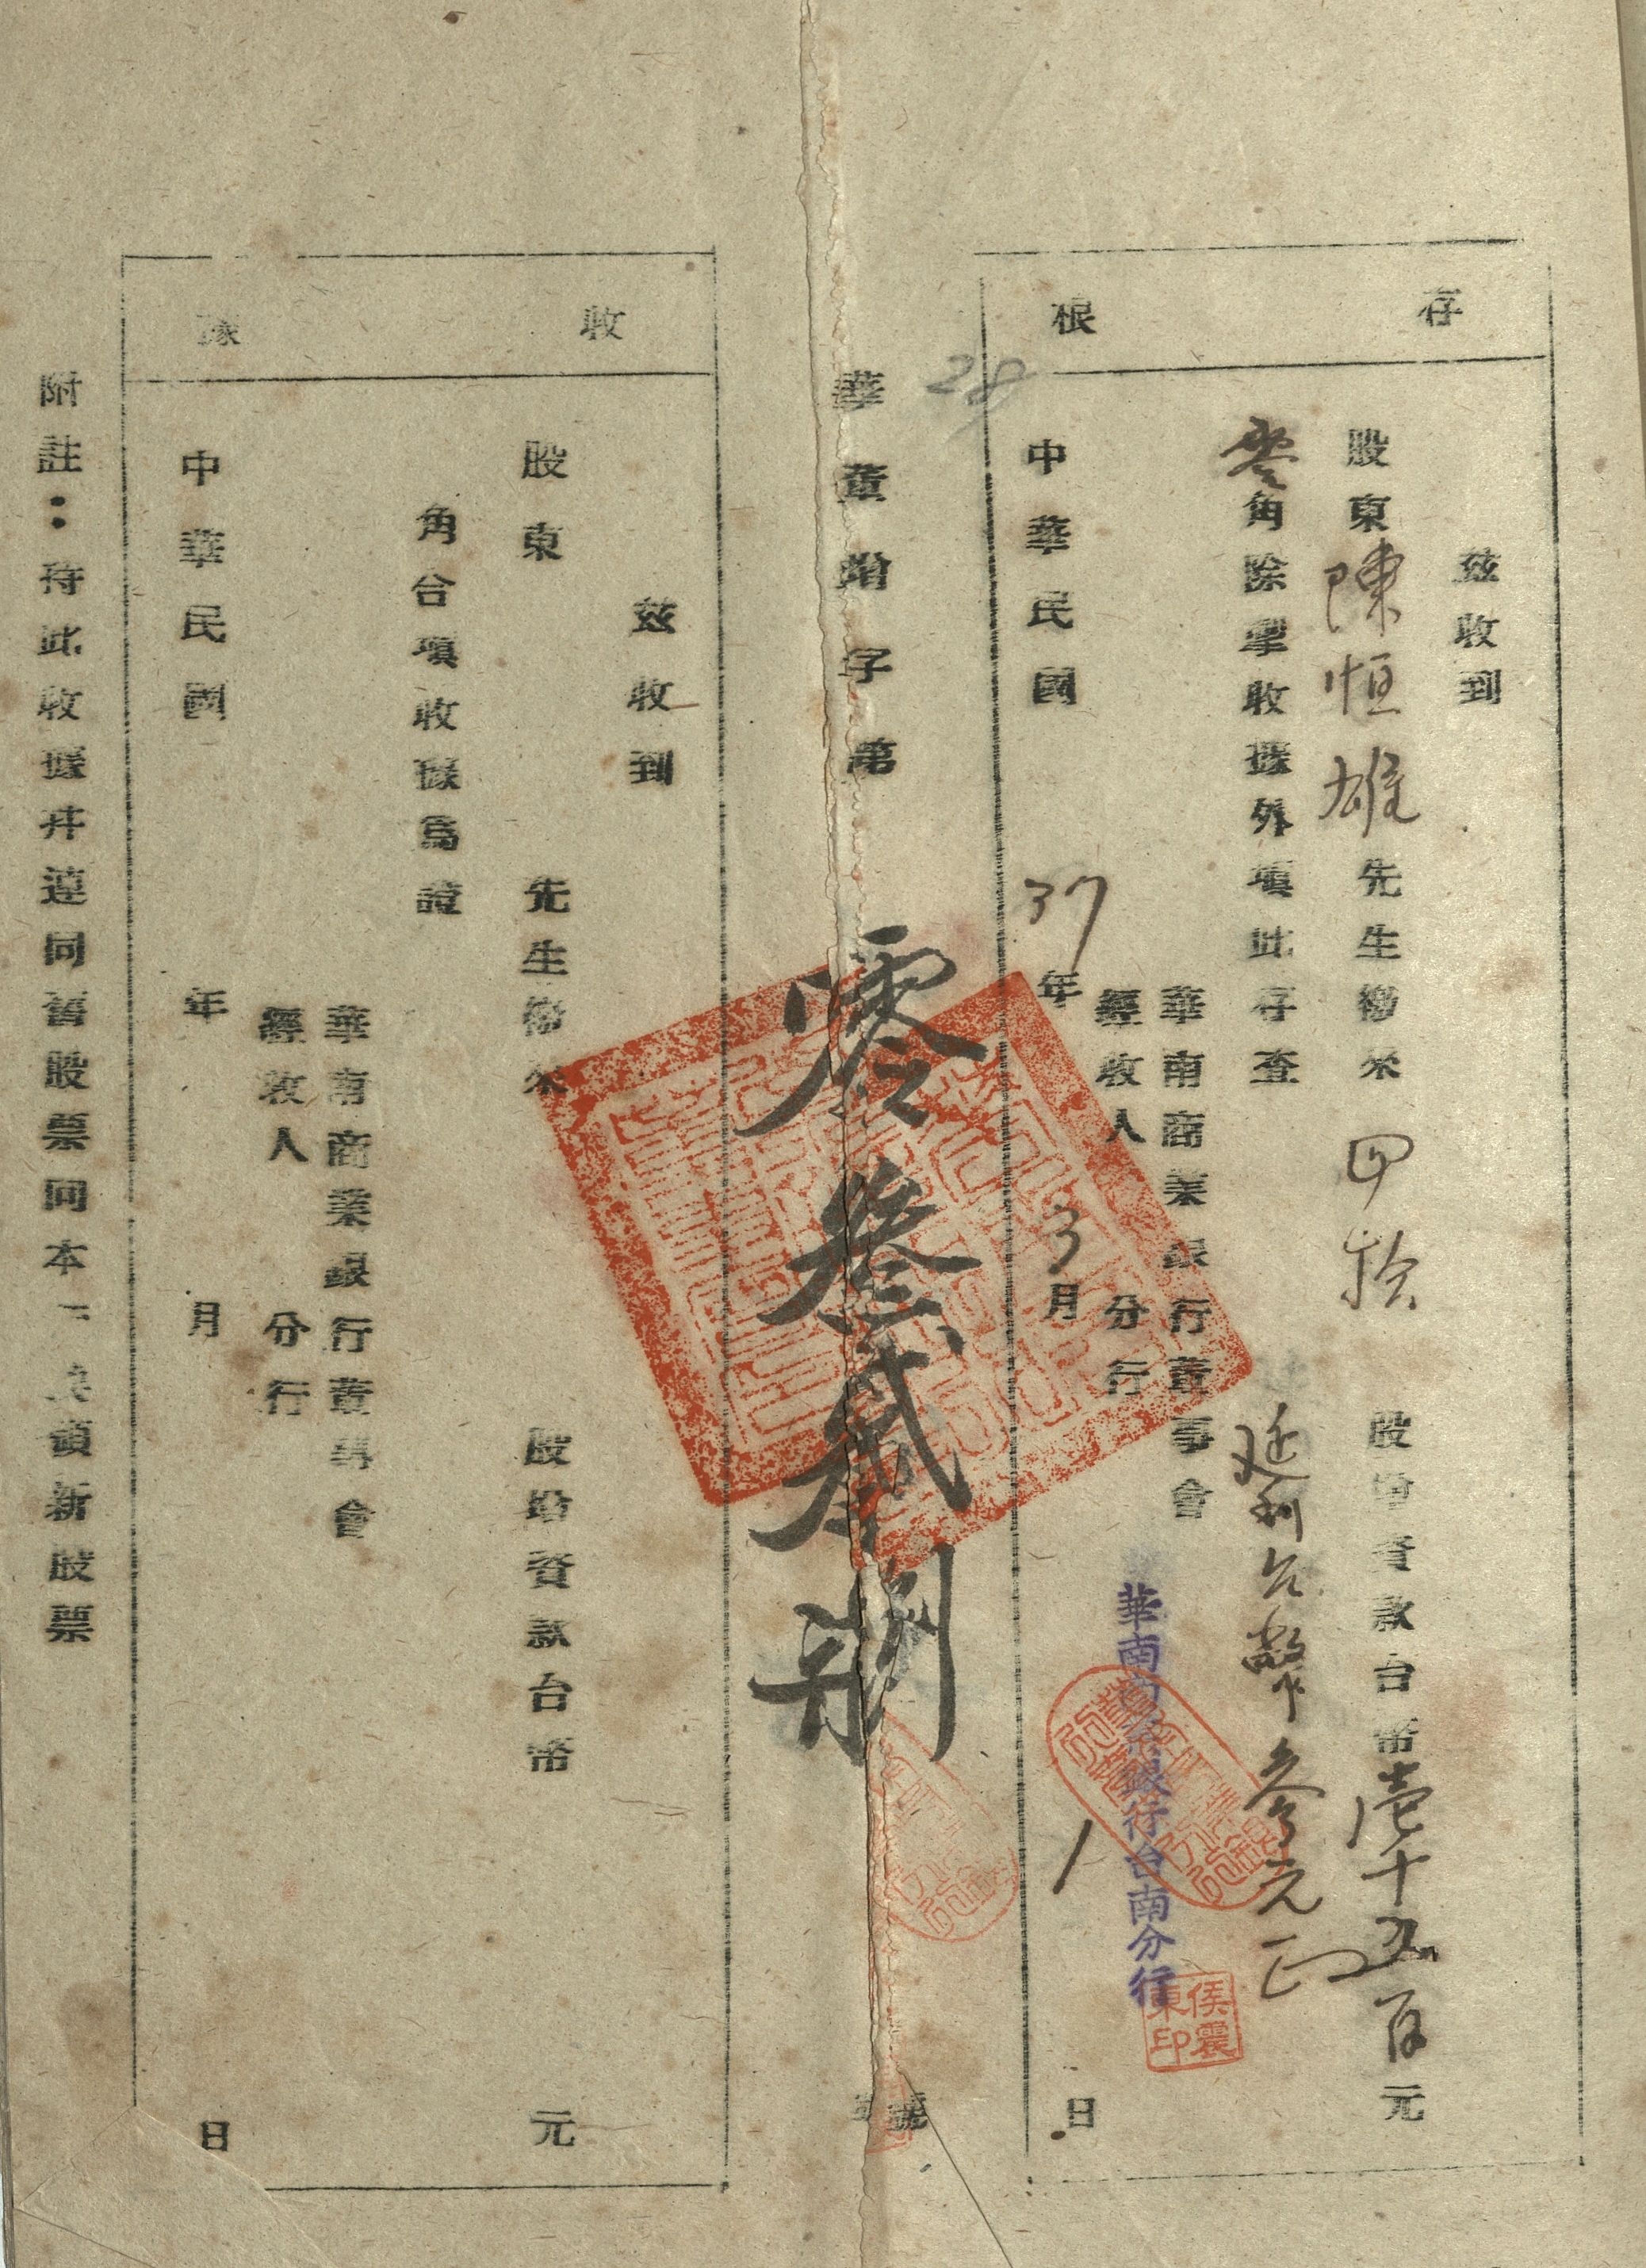 存根
茲收到
股東陳恒雄先生繳來四拾股增資款台幣壹千五百元
零角除掣收據外塡此存查
延利台幣参元正
華南商業銀行董事會
經收人分行
華南商業銀行台南分行
侯震東印
中華民國37年3月1日
28
華董增字第零叁貳捌號
收據
茲收到
股東先生繳來股增資款台幣元
角合塡收據爲證
華南商業銀行董事會
經收人分行
中華民國年月日
附註：待此收據幷連同舊股票同本行換領新股票